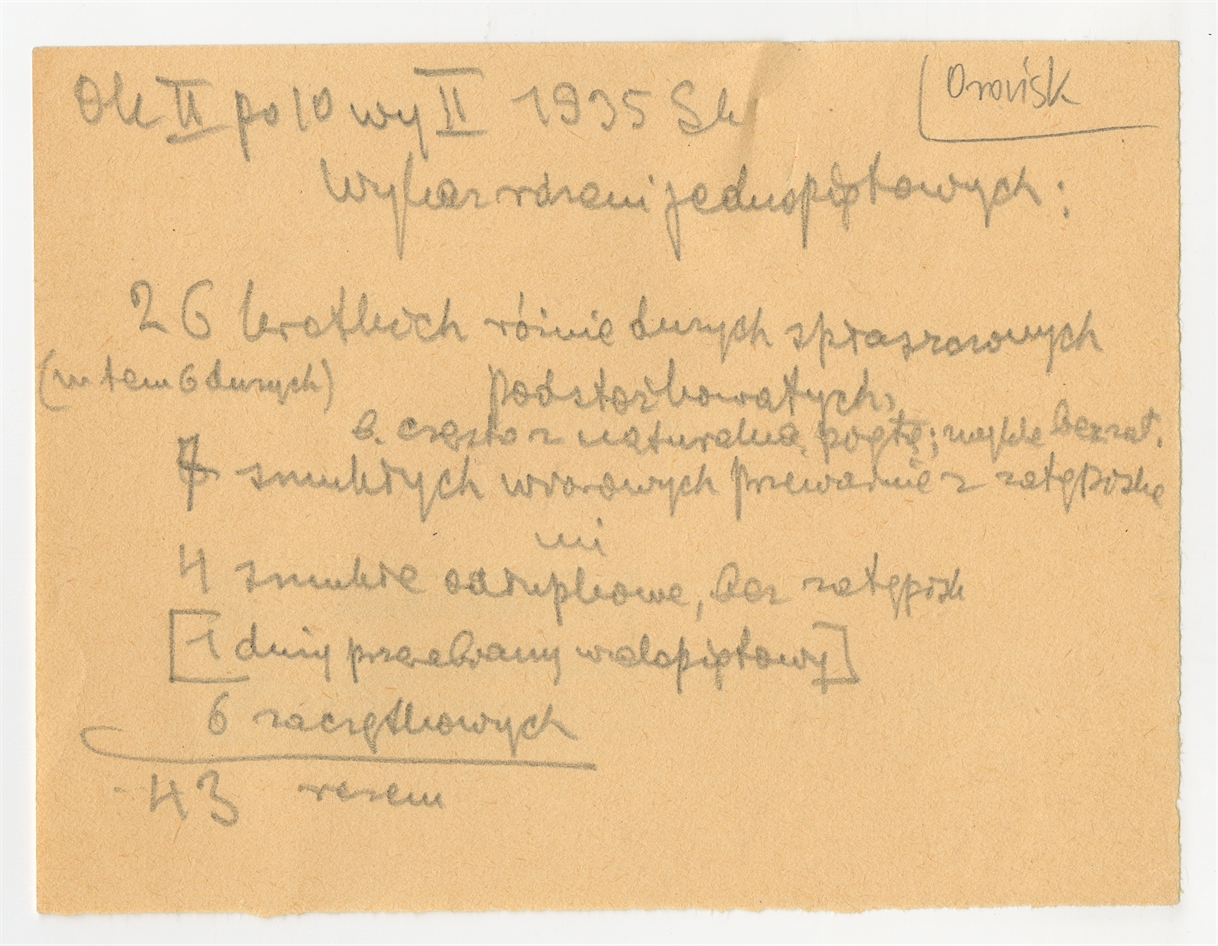 Orońsk
Ok II połowy II 1935 Sk
Wykaz rdzeni jednopiętowych:
26 krótkich różnie dużych spłaszczonych
(w tem 6 dużych) podstożkowatych,
b. często z naturalną piętą; zwykle bez zat.
7 smukłych wiórowych przeważnie z zatępiska
mi
4 smukłe odłupkowe, bez zatępisk
[1 duży przeabrany wielopiętowy]
6 zaczątkowych
43 razem